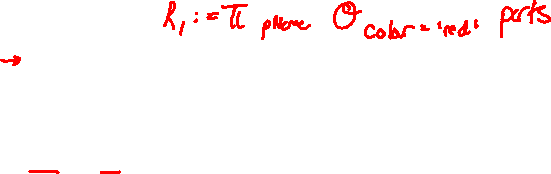 R₁ := π pname σ color = 'red' parts